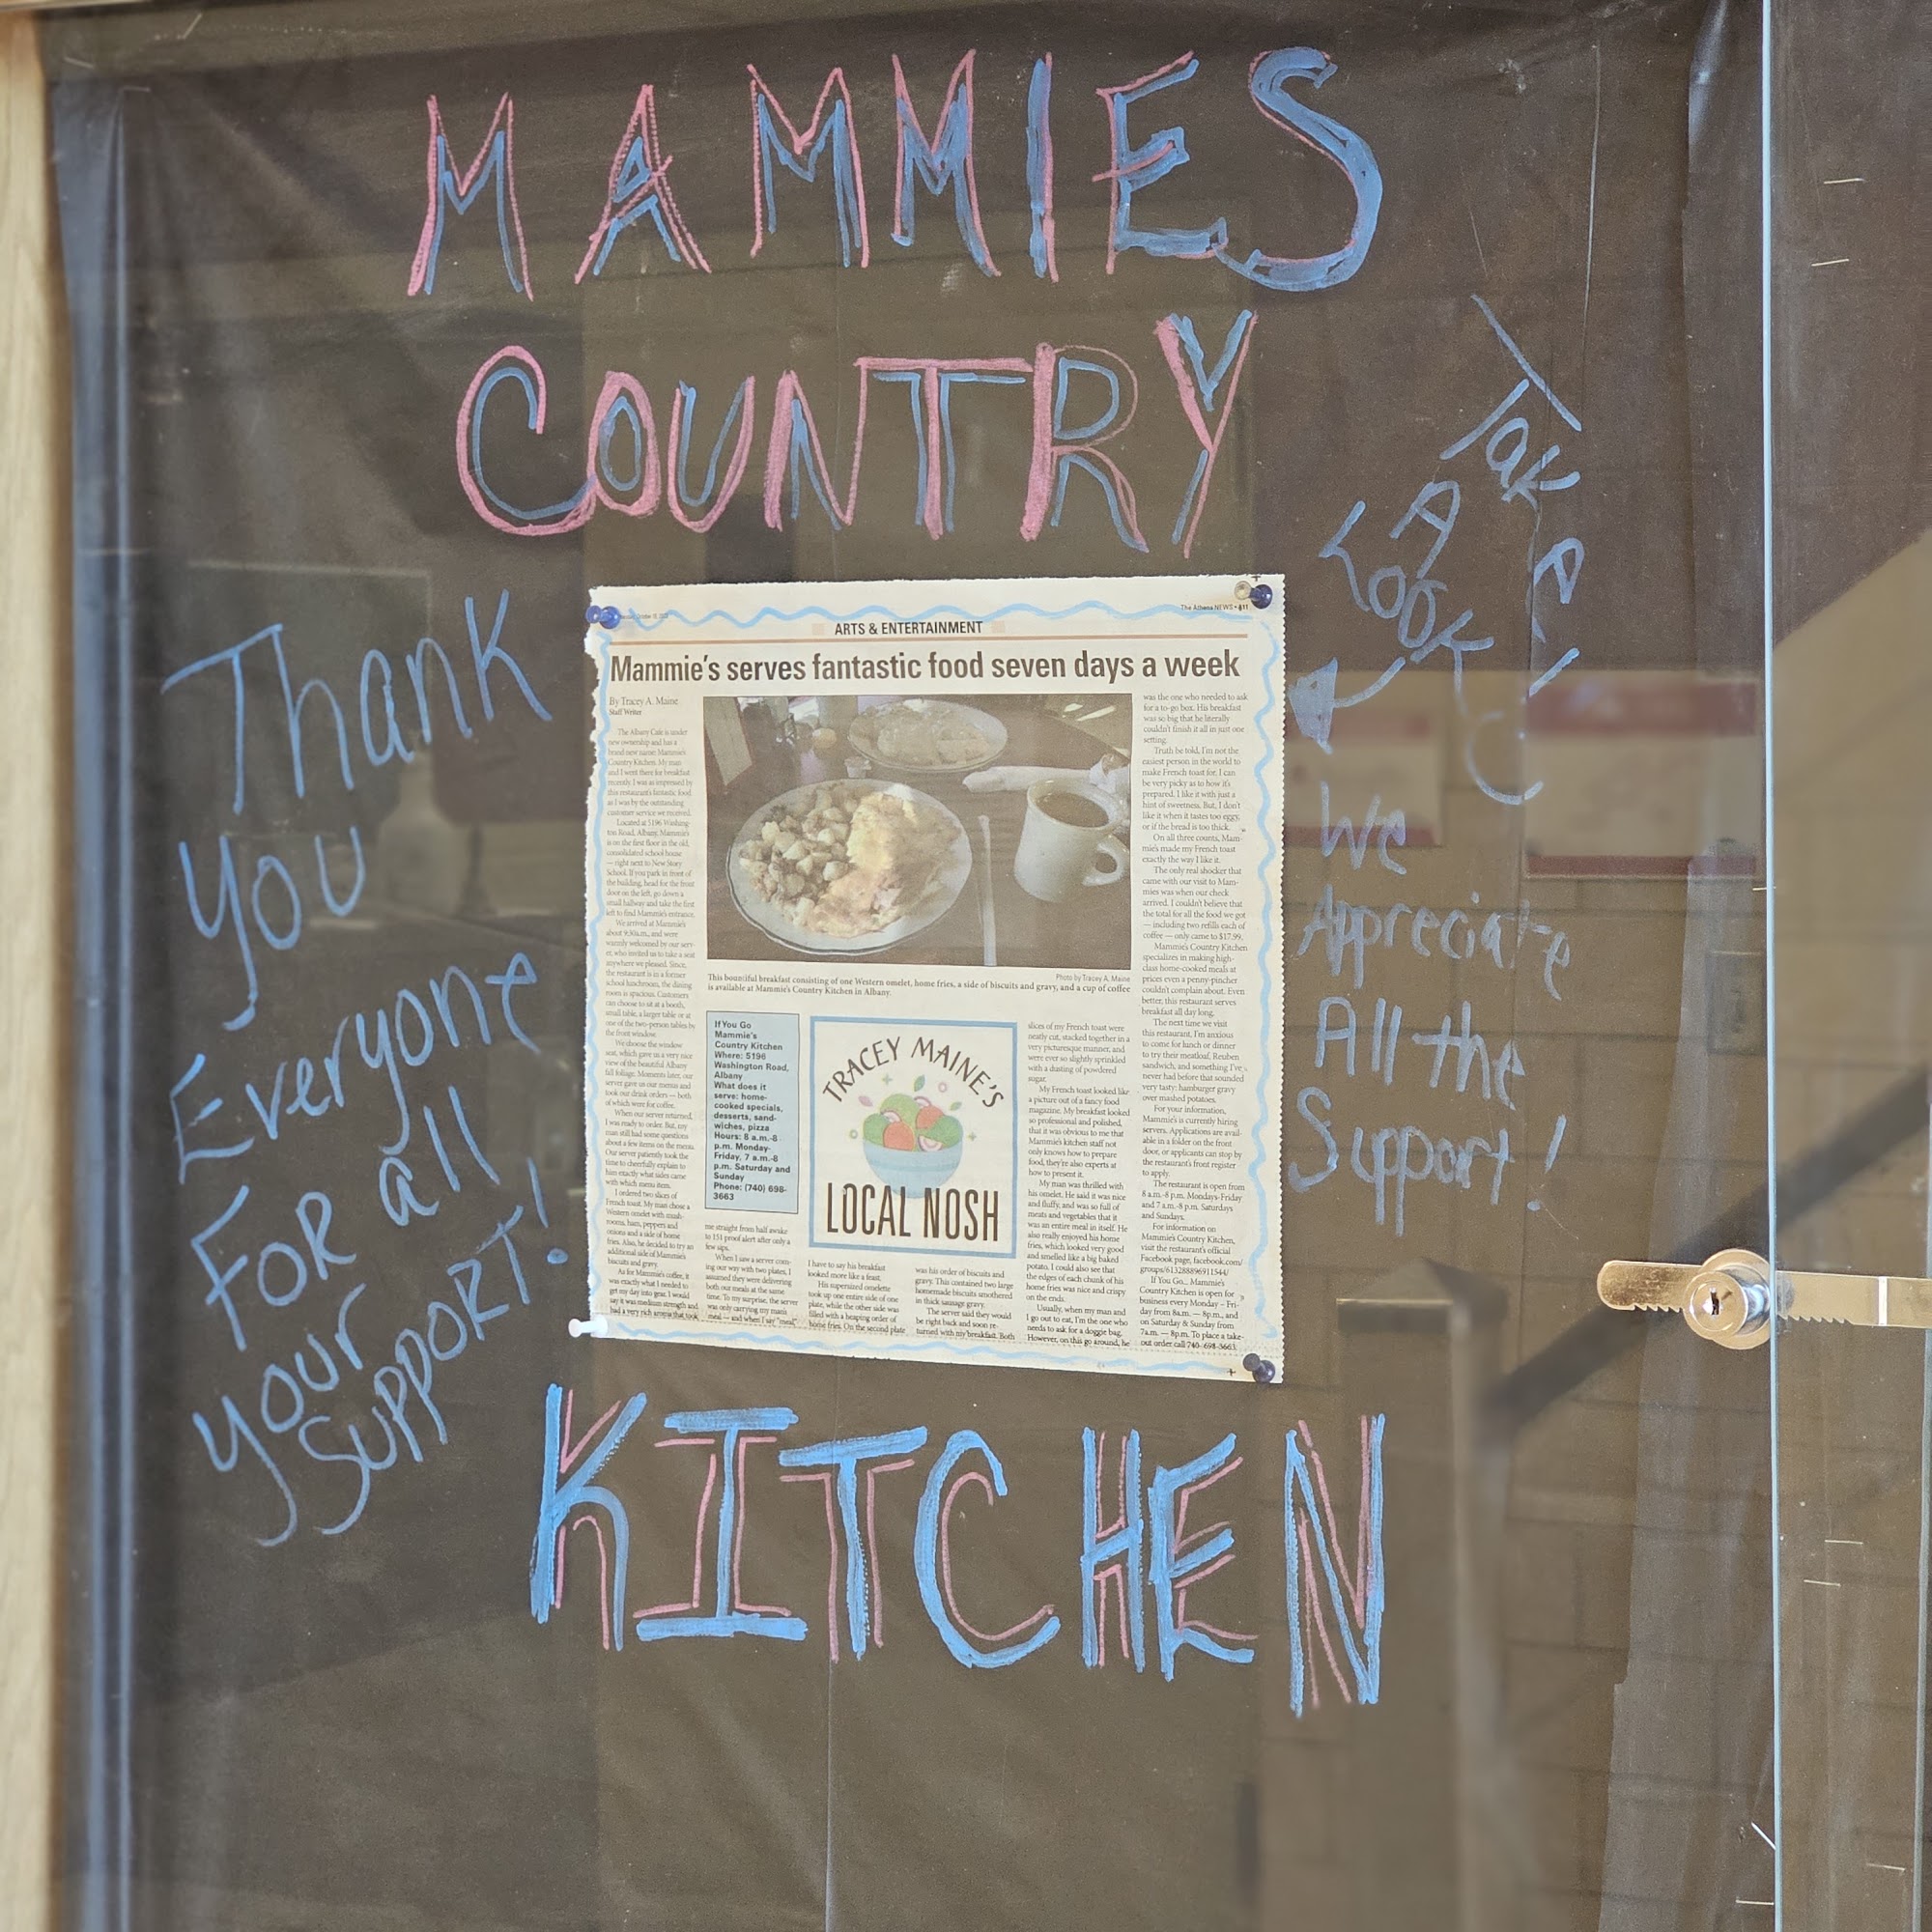 MAMMIES
COUNTRY
Thank
you
Everyone
FOR all
your
SUPPORT!
Take
A
LOOK
We
Appreciate
All the
Support!
The Athens NEWS • B11
ARTS & ENTERTAINMENT
Mammie's serves fantastic food seven days a week
By Tracey A. Maine
Staff Writer
The Albany Cafe is under
new ownership and has a
brand new name: Mammie's
Country Kitchen. My man
and I went there for breakfast
recently. I was as impressed by
this restaurant's fantastic food
as I was by the outstanding
customer service we received.
Located at 5196 Washing-
ton Road, Albany, Mammie's
is on the first floor in the old,
consolidated school house
— right next to New Story
School. If you park in front of
the building, head for the front
door on the left, go down a
small hallway and take the first
left to find Mammie's entrance.
We arrived at Mammie's
about 9:30a.m., and were
warmly welcomed by our serv-
er, who invited us to take a seat
anywhere we pleased. Since,
the restaurant is in a former
school lunchroom, the dining
room is spacious. Customers
can choose to sit at a booth,
small table, a larger table or at
one of the two-person tables by
the front window.
We choose the window
seat, which gave us a very nice
view of the beautiful Albany
fall foliage. Moments later, our
server gave us our menus and
took our drink orders — both
of which were for coffee.
When our server returned,
I was ready to order. But, my
man still had some questions
about a few items on the menu.
Our server patiently took the
time to cheerfully explain to
him exactly what sides came
with which menu item.
I ordered two slices of
French toast. My man chose a
Western omelet with mush-
rooms, ham, peppers and
onions and a side of home
fries. Also, he decided to try an
additional side of Mammie's
biscuits and gravy.
As for Mammie's coffee, it
was exactly what I needed to
get my day into gear. I would
say it was medium strength and
had a very rich aroma that took
Photo by Tracey A. Maine
This bountiful breakfast consisting of one Western omelet, home fries, a side of biscuits and gravy, and a cup of coffee
is available at Mammie's Country Kitchen in Albany.
If You Go
Mammie's
Country Kitchen
Where: 5196
Washington Road,
Albany
What does it
serve: home-
cooked specials,
desserts, sand-
wiches, pizza
Hours: 8 a.m.-8
p.m. Monday-
Friday, 7 a.m.-8
p.m. Saturday and
Sunday
Phone: (740) 698-
3663
TRACEY MAINE'S
LOCAL NOSH
me straight from half awake
to 151 proof alert after only a
few sips.
When I saw a server com-
ing our way with two plates, I
assumed they were delivering
both our meals at the same
time. To my surprise, the server
was only carrying my man's
meal — and when I say "meal,"
I have to say his breakfast
looked more like a feast.
His supersized omelette
took up one entire side of one
plate, while the other side was
filled with a heaping order of
home fries. On the second plate
was his order of biscuits and
gravy. This contained two large
homemade biscuits smothered
in thick sausage gravy.
The server said they would
be right back and soon re-
turned with my breakfast. Both
slices of my French toast were
neatly cut, stacked together in a
very picturesque manner, and
were ever so slightly sprinkled
with a dusting of powdered
sugar.
My French toast looked like
a picture out of a fancy food
magazine. My breakfast looked
so professional and polished,
that it was obvious to me that
Mammie's kitchen staff not
only knows how to prepare
food, they're also experts at
how to present it.
My man was thrilled with
his omelet. He said it was nice
and fluffy, and was so full of
meats and vegetables that it
was an entire meal in itself. He
also really enjoyed his home
fries, which looked very good
and smelled like a big baked
potato. I could also see that
the edges of each chunk of his
home fries was nice and crispy
on the ends.
Usually, when my man and
I go out to eat, I'm the one who
needs to ask for a doggie bag.
However, on this go around, he
was the one who needed to ask
for a to-go box. His breakfast
was so big that he literally
couldn't finish it all in just one
setting.
Truth be told, I'm not the
easiest person in the world to
make French toast for. I can
be very picky as to how it's
prepared. I like it with just a
hint of sweetness. But, I don't
like it when it tastes too eggy,
or if the bread is too thick.
On all three counts, Mam-
mie's made my French toast
exactly the way I like it.
The only real shocker that
came with our visit to Mam-
mies was when our check
arrived. I couldn't believe that
the total for all the food we got
— including two refills each of
coffee — only came to $17.99.
Mammie's Country Kitchen
specializes in making high-
class home-cooked meals at
prices even a penny-pincher
couldn't complain about. Even
better, this restaurant serves
breakfast all day long.
The next time we visit
this restaurant, I'm anxious
to come for lunch or dinner
to try their meatloaf, Reuben
sandwich, and something I've
never had before that sounded
very tasty: hamburger gravy
over mashed potatoes.
For your information,
Mammie's is currently hiring
servers. Applications are avail-
able in a folder on the front
door, or applicants can stop by
the restaurant's front register
to apply.
The restaurant is open from
8 a.m.-8 p.m. Mondays-Friday
and 7 a.m.-8 p.m. Saturdays
and Sundays.
For information on
Mammie's Country Kitchen,
visit the restaurant's official
Facebook page, facebook.com/
groups/613288896911544/
If You Go... Mammie's
Country Kitchen is open for
business every Monday – Fri-
day from 8a.m. — 8p.m., and
on Saturday & Sunday from
7a.m. — 8p.m. To place a take-
out order call 740- 698-3663.
KITCHEN